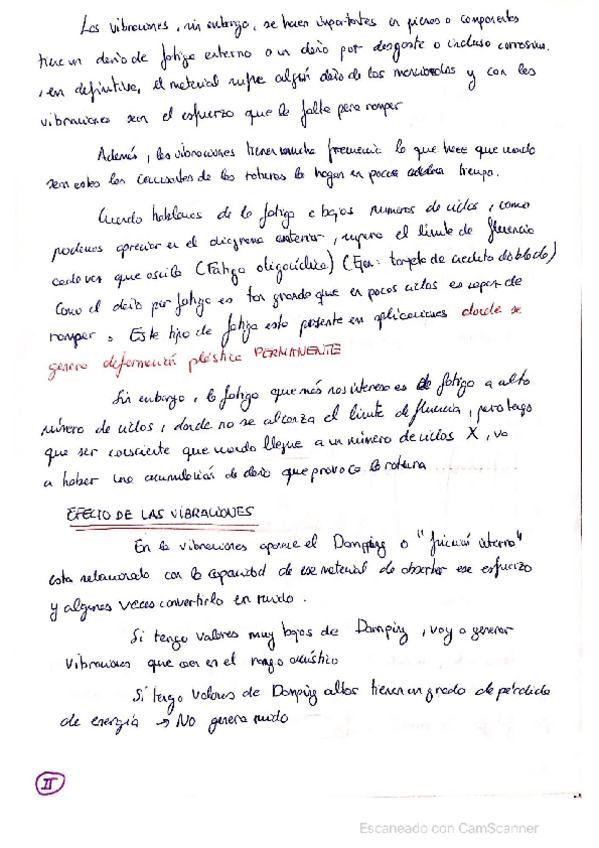 Las vibraciones, sin embargo, se hacen importantes en piezas o componentes
tiene un daño de fatiga externo o un daño por desgaste o incluso corrosión.
, en definitiva, el material sufre algún daño de los mencionados y con las
vibraciones sea el esfuerzo que le falta para romper
Además, las vibraciones tienen mucha frecuencia lo que hace que cuando
sean estas las causantes de las roturas lo hagan en poco tiempo.
Cuando hablamos de la fatiga a bajos números de ciclos, como
podemos apreciar en el diagrama anterior, supera el límite de fluencia
cada vez que oscila (Fatiga oligocíclica) (Ejm: tarjeta de credito doblado)
Como el daño por fatiga es tan grande que en pocos ciclos es capaz de
romper. Este tipo de fatiga esta presente en aplicaciones donde se
genera deformación plástica PERMANENTE
Sin embargo, la fatiga que más nos interesa es fatiga a alto
número de ciclos, donde no se alcanza el límite de fluencia, pero tengo
que ser consciente que cuando llegue a un número de ciclos X, va
a haber una acumulación de daño que provoca la rotura
EFECTO DE LAS VIBRACIONES
En la vibraciones aparece el Damping o "fricción interna"
esta relacionado con la capacidad de ese material de absorber ese esfuerzo
y algunas veces convertirlo en ruido.
Si tengo valores muy bajos de Damping, voy a generar
vibraciones que caen en el rango acústico
Si tengo valores de Damping altos tienen un grado de pérdida
de energía → No genera ruido
II
Escaneado con CamScanner